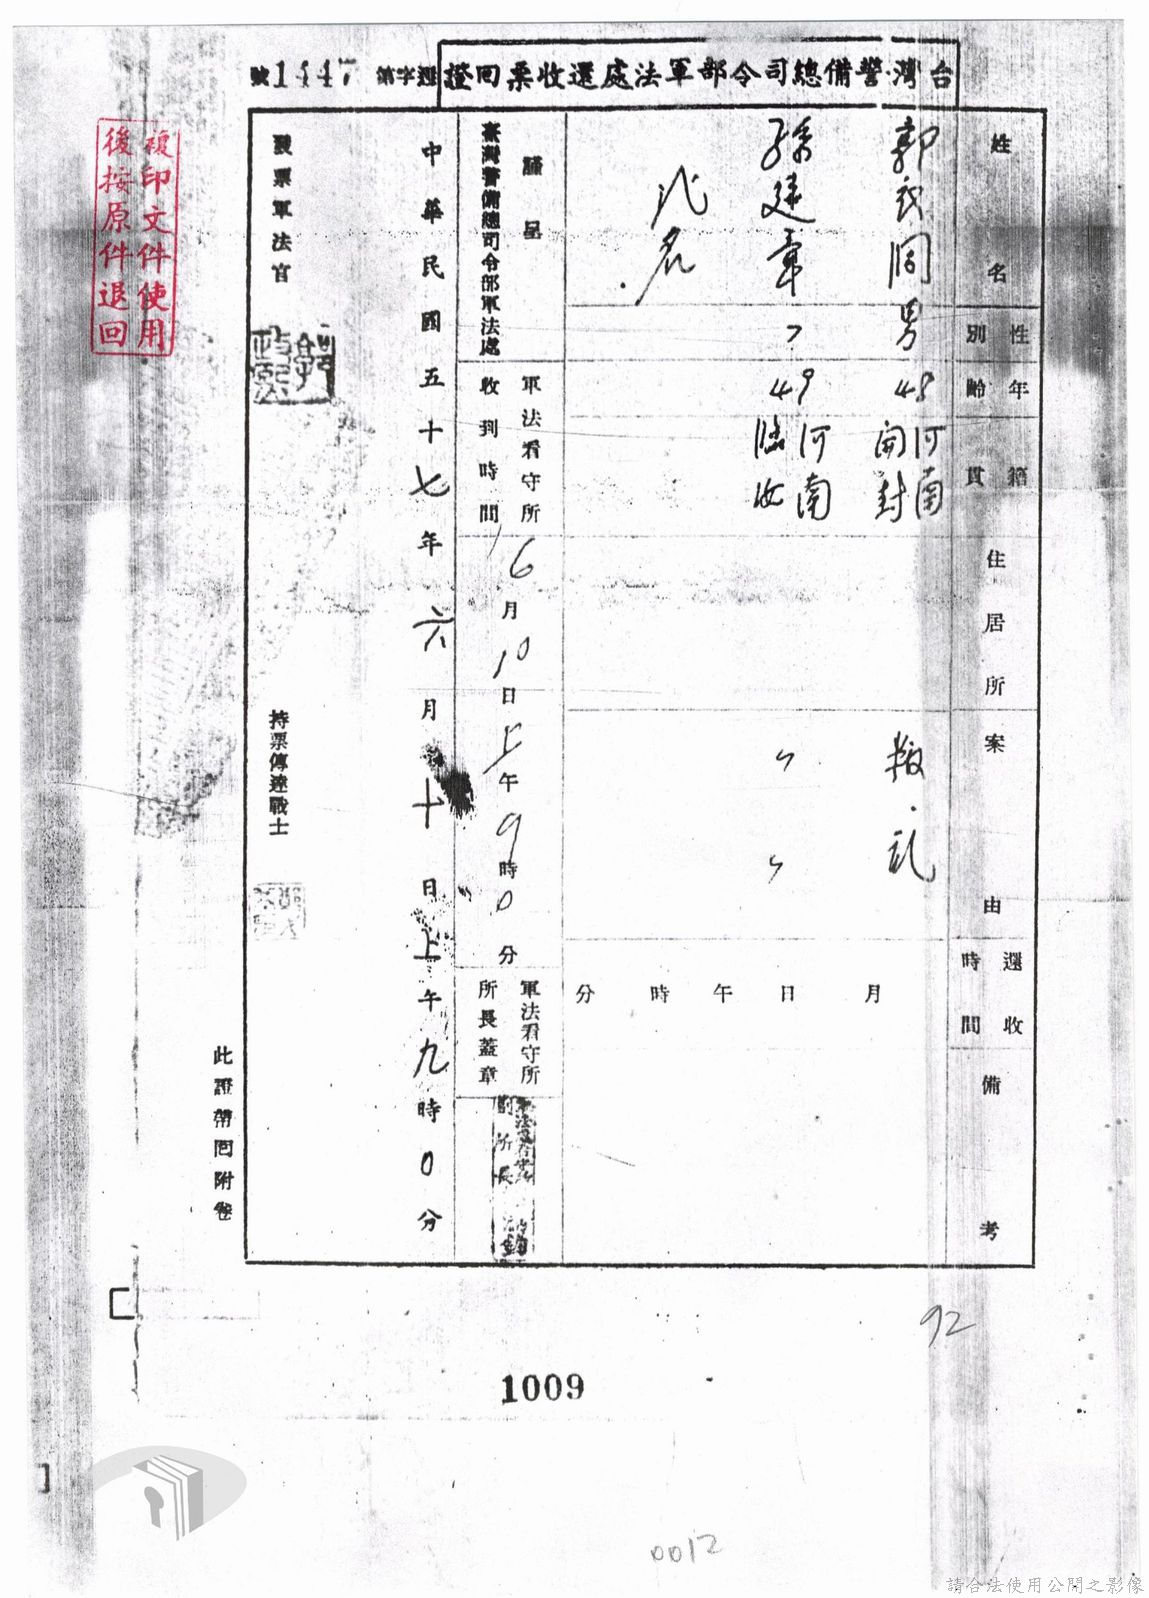 台灣警備總司令部軍法處還收票回證
還字第1447號
姓名
性別
年齡
籍貫
住居所
案由
還收時間
備考
郭衣同
男
48
河南開封
叛乱
孫建章
〃
49
河南臨汝
〃
〃
貳名
月 日 午 時 分
謹呈
臺灣警備總司令部軍法處
軍法看守所收到時間
6月10日上午9時0分
軍法看守所所長蓋章
中華民國五十七年六月十日上午九時0分
發票軍法官
持票傳達戰士
此證帶回附卷
複印文件使用
後按原件退回
92
1009
0012
請合法使用公開之影像